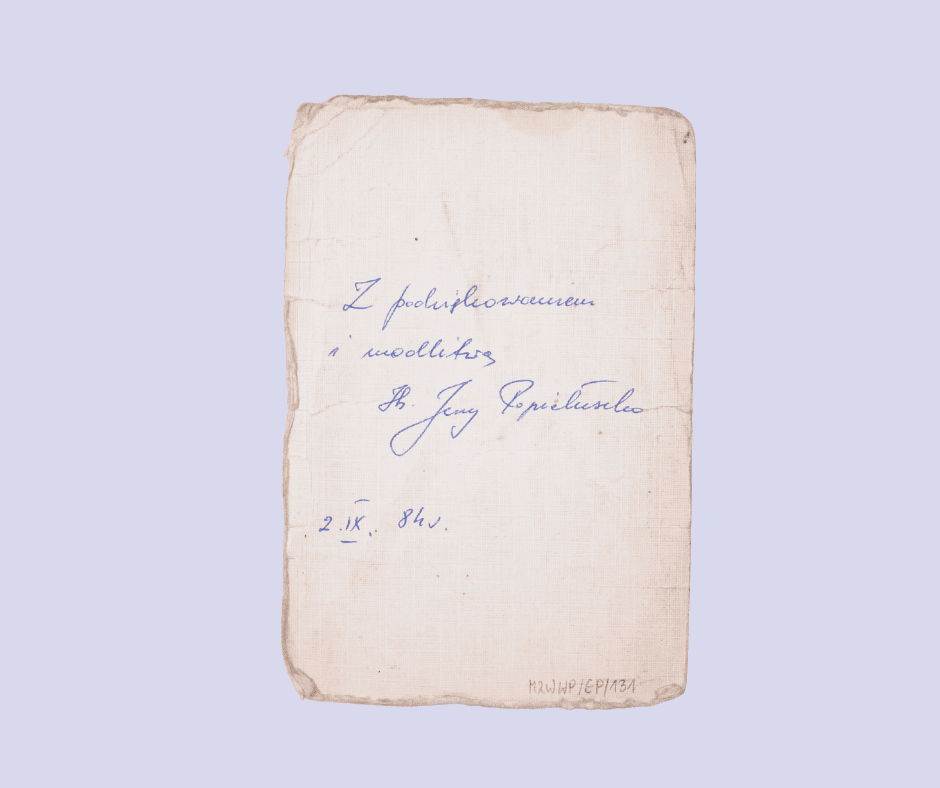 Z podziękowaniem
i modlitwą
Ks. Jerzy Popiełuszko
2.IX. 84 r.
M2WWP/EP/131